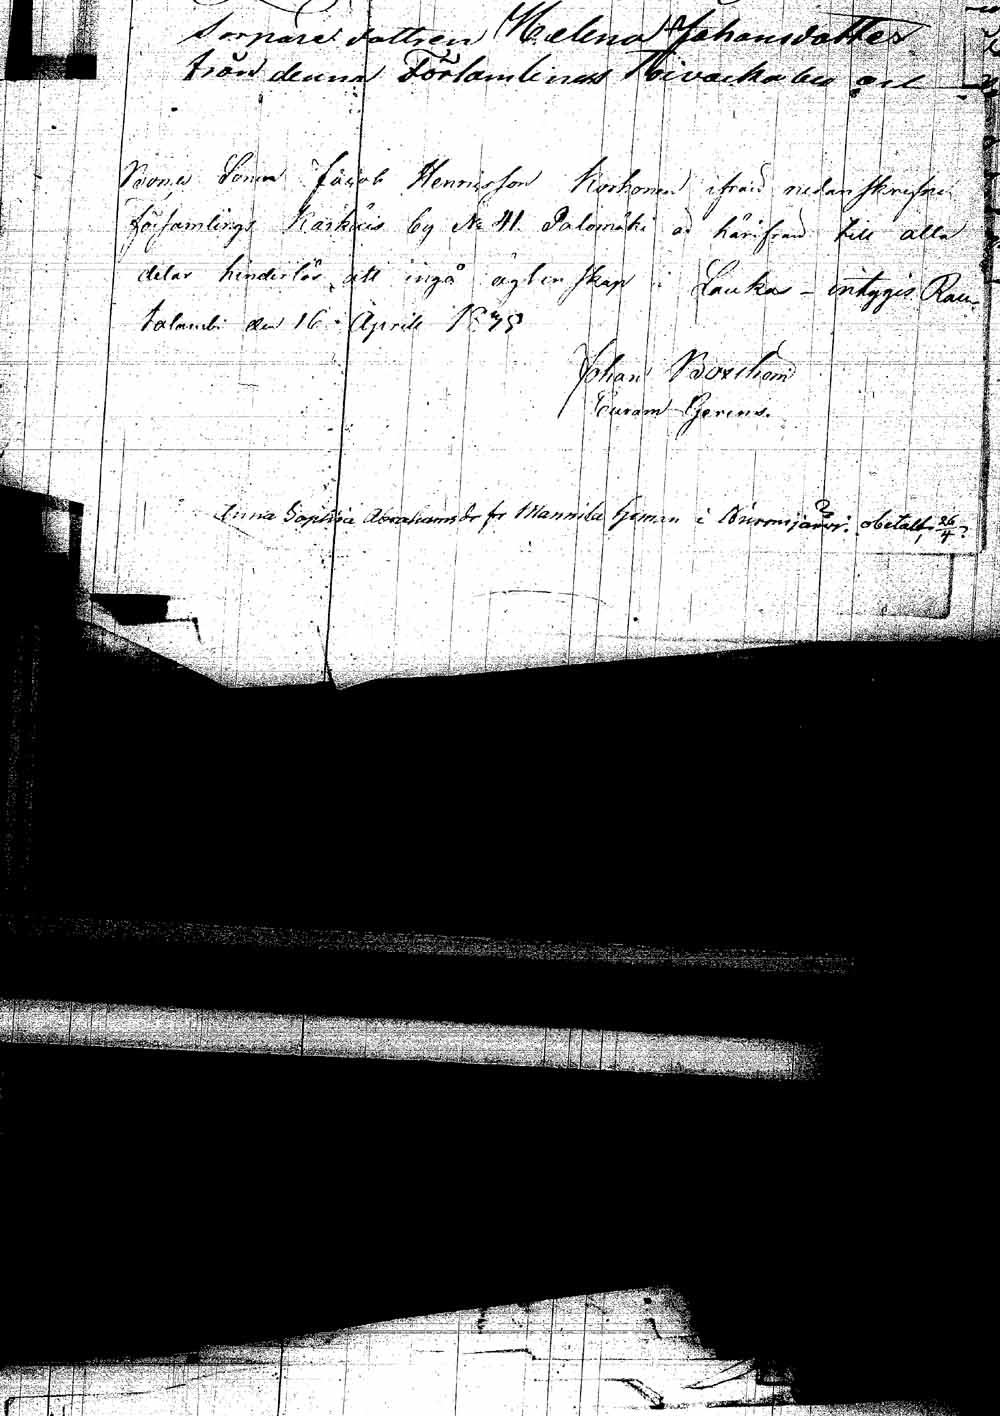 Torpare dottren Helena Johansdotter
från denna Församlings Toivacka by och
Bonde Sonen Jacob Henricsson Korhonen ifrån nedanskrefne
församlings Kärkäis by No 41. Palomäki är härifrån till alla
delar hinderlös att ingå ägtenskap i Laukas – intygis Rau-
talambi den 16 Aprill 1879
Johan Boxström
Curam Gerens.
Anna Sophia Abrahamsdr fr Mannila heman i obetalt 26/4